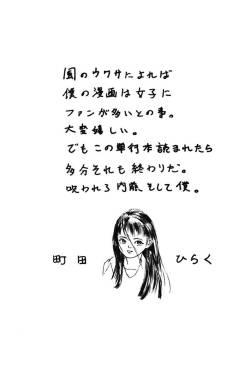 風のウワサによれば
僕の漫画は女子に
ファンが多いとの事。
大変嬉しい。
でもこの単行本読まれたら
多分それも終わりだ。
呪われろ内臓そして僕。
町田 ひらく